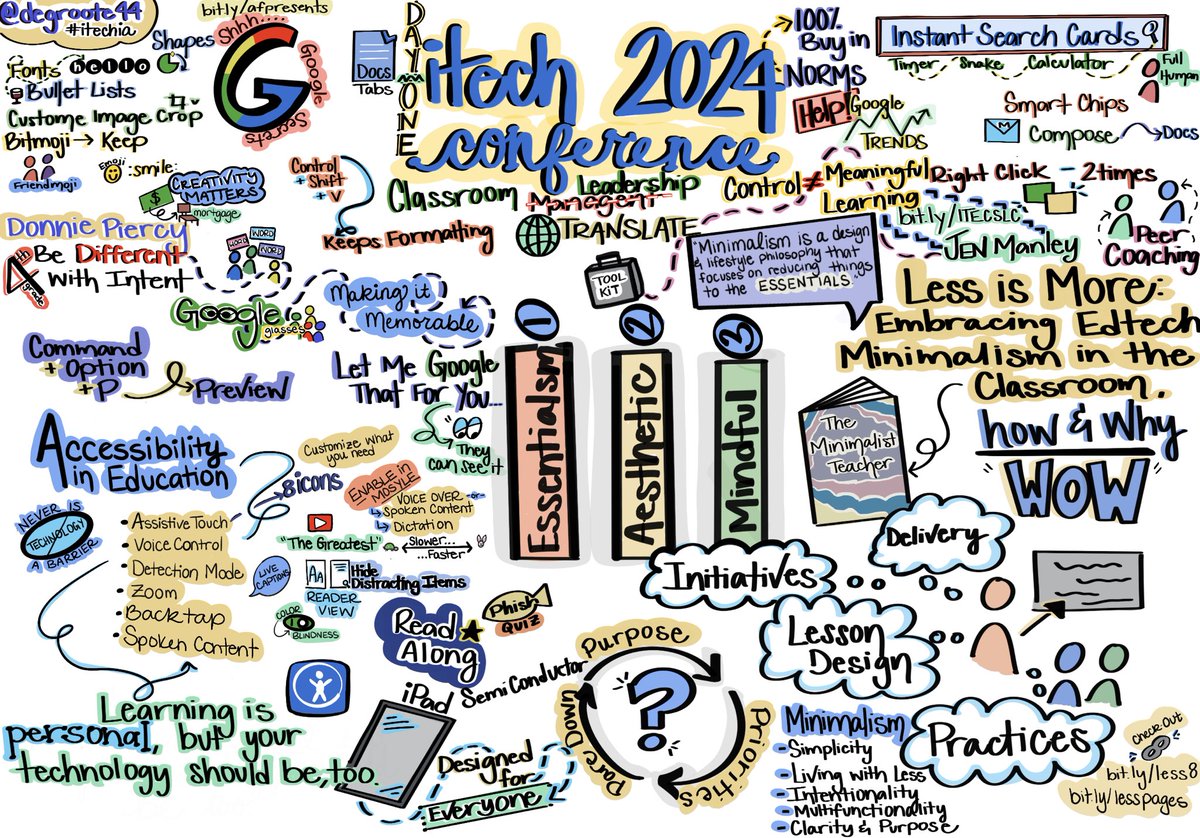 @degroote44
#itechia
bit.ly/afpresents
Shhh....
G
Google
Secrets
Shapes
Fonts hello
Bullet Lists
Custome Image Crop
Bitmoji → Keep
Friendmoji
Emoji
:smile:
$
CREATIVITY
MATTERS
mortgage
Donnie Piercy
4th
grade
Be Different
with Intent
WORD
WORD
WORD
Google
glasses
Command
+ Option
+ P
Preview
Docs
Tabs
DAY ONE
itech 2024
conference
Control
+ Shift
+ V
Keeps Formatting
Classroom
Leadership
Managent
TRANSLATE
TOOL
KIT
Making it
Memorable
Let Me Google
That For You...
They
can see it
100%
Buy in
NORMS
Help!
Google
TRENDS
Control ≠ Meaningful
Learning
Instant Search Cards?
Timer Snake Calculator
Full
Human
Smart Chips
Compose → Docs
Right Click - 2times
bit.ly/ITECSLC
JEN Manley
Peer
Coaching
"Minimalism is a design
& lifestyle philosophy that
focuses on reducing things
to the ESSENTIALS."
Less is More:
Embracing Edtech
Minimalism in the
Classroom.
how & why
WOW
The
Minimalist
Teacher
1
Essentialism
2
Aesthetic
3
Mindful
Accessibility
in Education
NEVER IS
TECHNOLOGY
A BARRIER
• Assistive Touch
• Voice Control
• Detection Mode
• Zoom
• Backtap
• Spoken Content
Customize what
you need
8icons
ENABLE IN
MOSYLE
VOICE OVER -or-
Spoken Content
Dictation
"The Greatest"
Slower...
...Faster
LIVE
CAPTIONS
AA
READER
VIEW
Hide
Distracting Items
COLOR
BLINDNESS
Read
Along
Phish
QUIZ
Learning is
personal, but your
technology should be, too.
iPad
Semiconductor
Designed
for
Everyone
Purpose
Priorities
Pare Down
?
Initiatives
Delivery
Lesson
Design
Practices
Minimalism
- Simplicity
- Living with Less
- Intentionality
- Multifunctionality
- Clarity & Purpose
Check Out
bit.ly/less8
bit.ly/lesspages